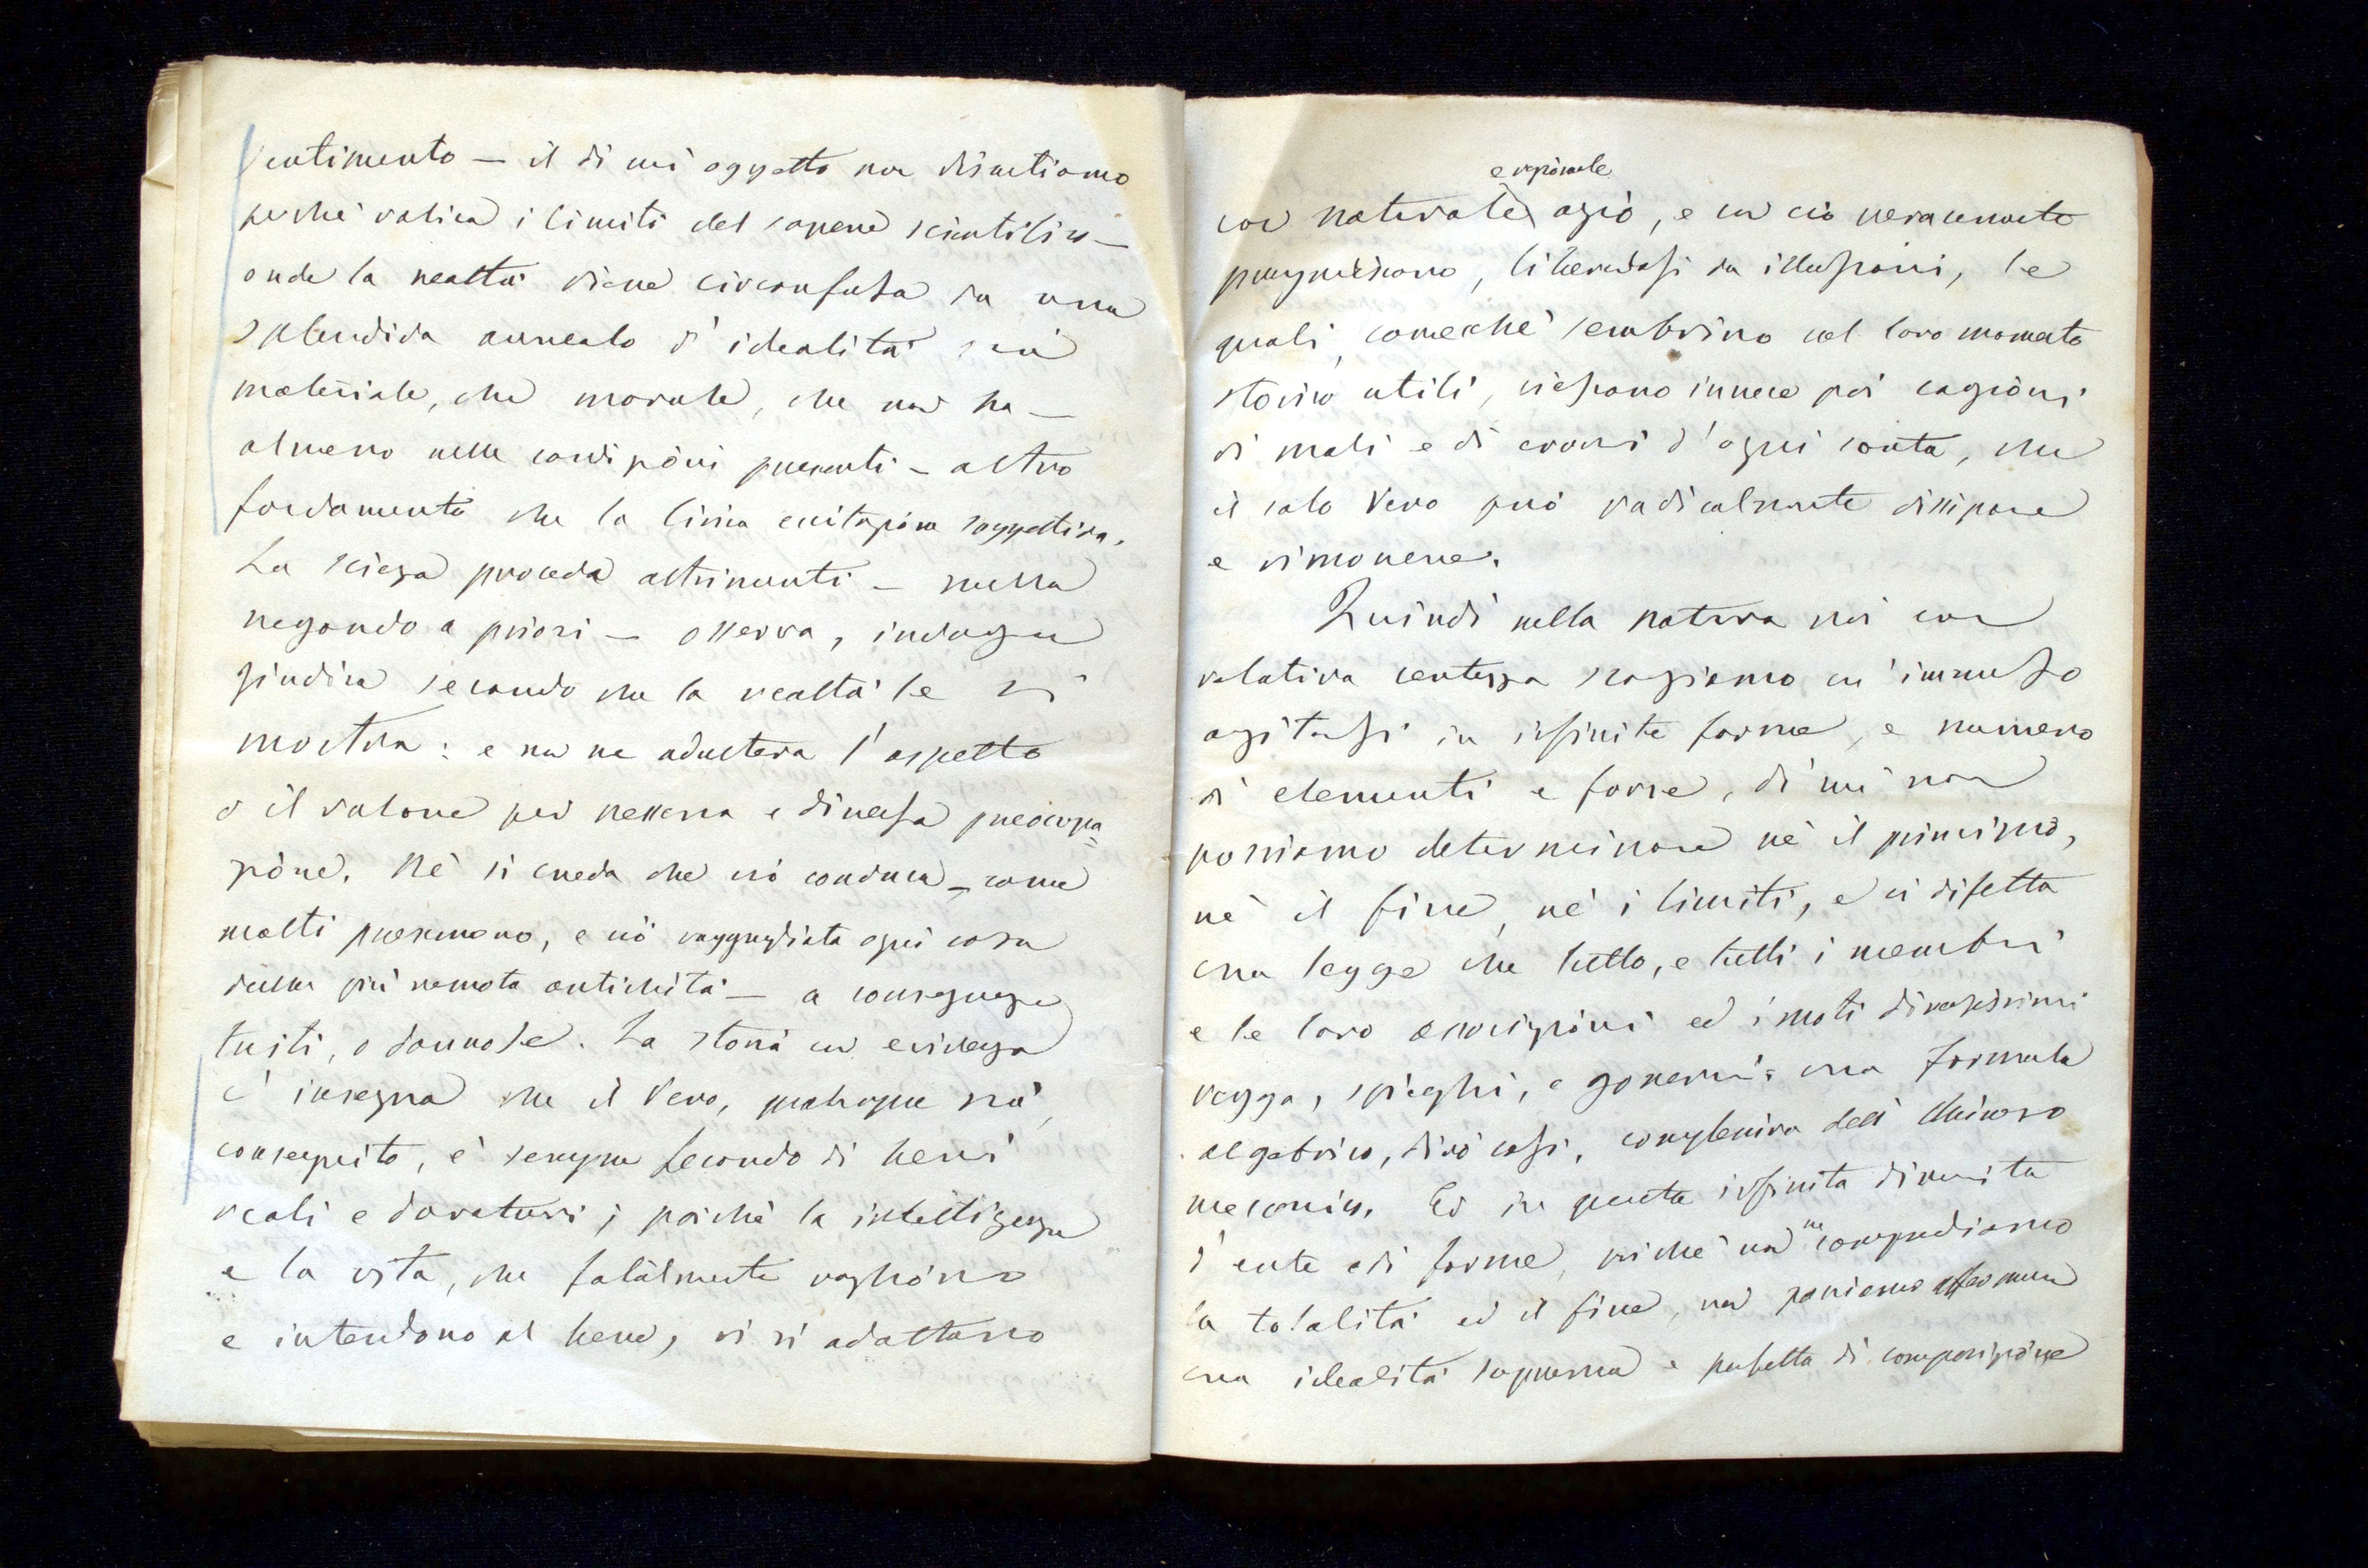 sentimento — il di cui oggetto non discutiamo
perché valica i limiti del sapere scientifico —
onde la realtà viene circonfusa da una
splendida aureola d'idealità sia
materiale, che morale, che non ha —
almeno nelle condizioni presenti — altro
fondamento che la lirica eccitazione soggettiva.
La scienza procede altrimenti — nulla
negando a priori — osserva, indaga
giudica secondo che la realtà le si
mostra: e non ne adultera l'aspetto
o il valore per nessuna e diversa preoccupa=
zione. Nè si creda che ciò conduca — come
molti presumono, e ciò ragguagliata ogni cosa
dalla più remota antichità — a conseguenze
tristi, o dannose. La storia con evidenza
c'insegna che il Vero, qualunque sia,
conseguito, è sempre fecondo di beni
reali e duraturi; poichè la intelligenza
e la vita, che fatalmente vogliono
e intendono al bene, vi si adattano
con naturale e razionale agio, e con ciò veracemente
progrediscono, liberandosi da illusioni, le
quali, comechè sembrino nel loro momento
storico utili, riescono invece poi cagioni
di mali e di errori d'ogni sorta, che
il solo Vero può radicalmente dissipare
e rimovere.
Quindi nella natura noi con
relativa certezza scorgiamo un immenso
agitarsi in infinite forme, e numero
di elementi e forze, di cui non
possiamo determinare nè il principio,
nè il fine, nè i limiti, e ci difetta
una legge che tutto, e tutti i membri
e le loro associazioni ed i moti diversissimi
regga, spieghi, e governi: una formula
algebrica, dirò così, complessiva dell'Universo
meccanico. Ed in questa infinita diversità
d'ente e di forme, poichè non ne comprendiamo
la totalità ed il fine, non possiamo affermare
una idealità suprema e perfetta di composizione